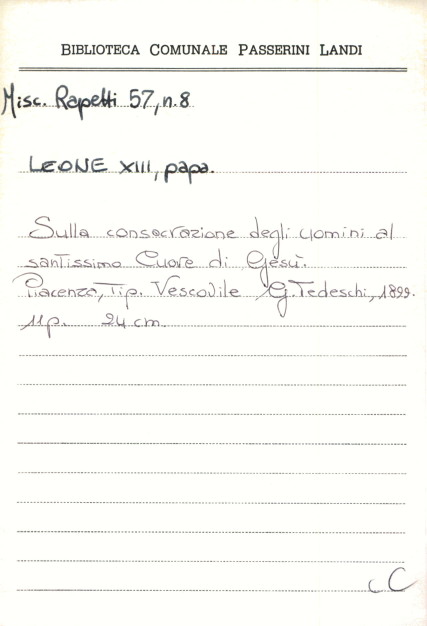 BIBLIOTECA COMUNALE PASSERINI LANDI
Misc. Rapetti 57, n.8
LEONE XIII, papa.
Sulla consacrazione degli uomini al
santissimo Cuore di Gesù.
Piacenza, Tip. Vescovile G. Tedeschi, 1899.
11 p. 24 cm.